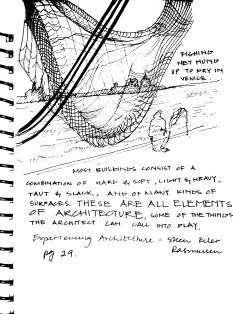 FISHING
NET HUNG
UP TO DRY IN
VENICE
MOST BUILDINGS CONSIST OF A
COMBINATION OF HARD & SOFT, LIGHT & HEAVY,
TAUT & SLACK, AND OF MANY KINDS OF
SURFACES. THESE ARE ALL ELEMENTS
OF ARCHITECTURE, SOME OF THE THINGS
THE ARCHITECT CAN CALL INTO PLAY.
Experiencing Architecture - Steen Eiler
Rasmussen
pg 29.